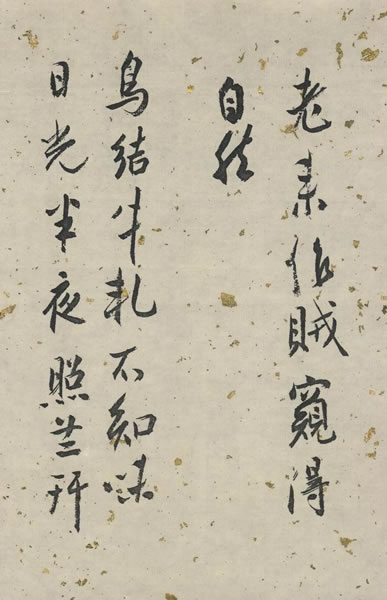 老来作賊窺得
自然
鳥結牛軋不知味
日光半夜照